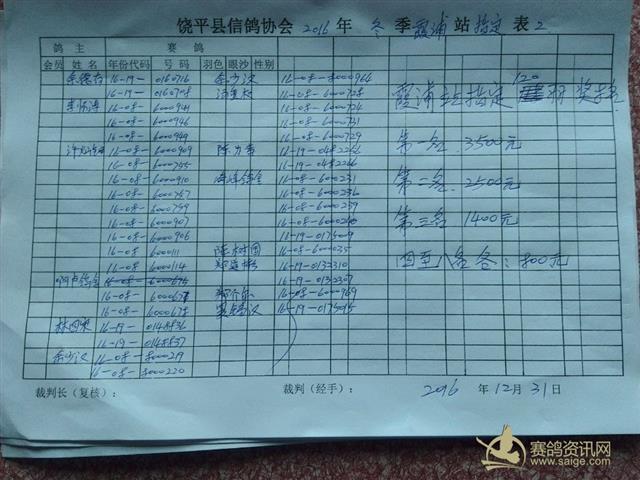 饶平县信鸽协会 2016 年 冬 季 霞浦 站 指定 表 2
鸽 主 赛 鸽
会员 姓 名 年份代码 号 码 羽色 眼沙 性别
16-19- 0160716 余少汉 16-08-8000966
16-19- 0160708 16-08-6000728
16-08-6000941 16-08-6000724
16-08-6000946 16-08-6000731
16-08-6000949 16-08-6000729
16-08-6000909 16-19-0482266
16-08-6000755 16-19-0482266
16-08-6000910 16-08-6000231
16-08-6000767 16-08-6000236
16-08-6000759 16-08-6000239
16-08-6000907
16-08-6000906 16-19-0175009
16-08-6000111 陈树国 16-08-6000035
16-08-6000114 16-19-0132310
16-19-0132307
16-08-6000678 16-08-6000969
16-08-6000675 16-19-0175015
林四弟 16-19-0148836
16-19-0148837
余少汉 16-08-8000219
16-08-8000220
霞浦站指定 120 羽 奖金
第一名 3500元
第二名 2500元
第三名 1400元
四至八名各：800元
裁判长（复核）： 裁判（经手）： 2016 年 12 月 31 日
赛鸽资讯网
www.saige.com